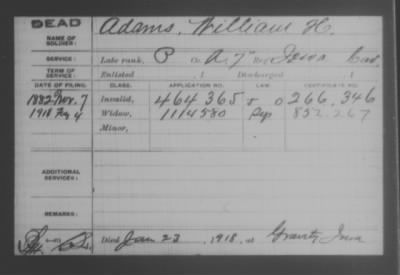 DEAD
NAME OF SOLDIER: Adams, William H.
SERVICE: Late rank, P Co. A, 7" Reg't Iowa Cav.
TERM OF SERVICE: Enlisted , 1 Discharged , 1
DATE OF FILING. CLASS. APPLICATION NO. LAW. CERTIFICATE NO.
1882 Nov. 7 Invalid, 464 365 266,346
1918 4 Widow, 1114580 852,267
Minor,
ADDITIONAL SERVICES:
REMARKS:
Died Jan 23, 1918, at Gravity, Iowa